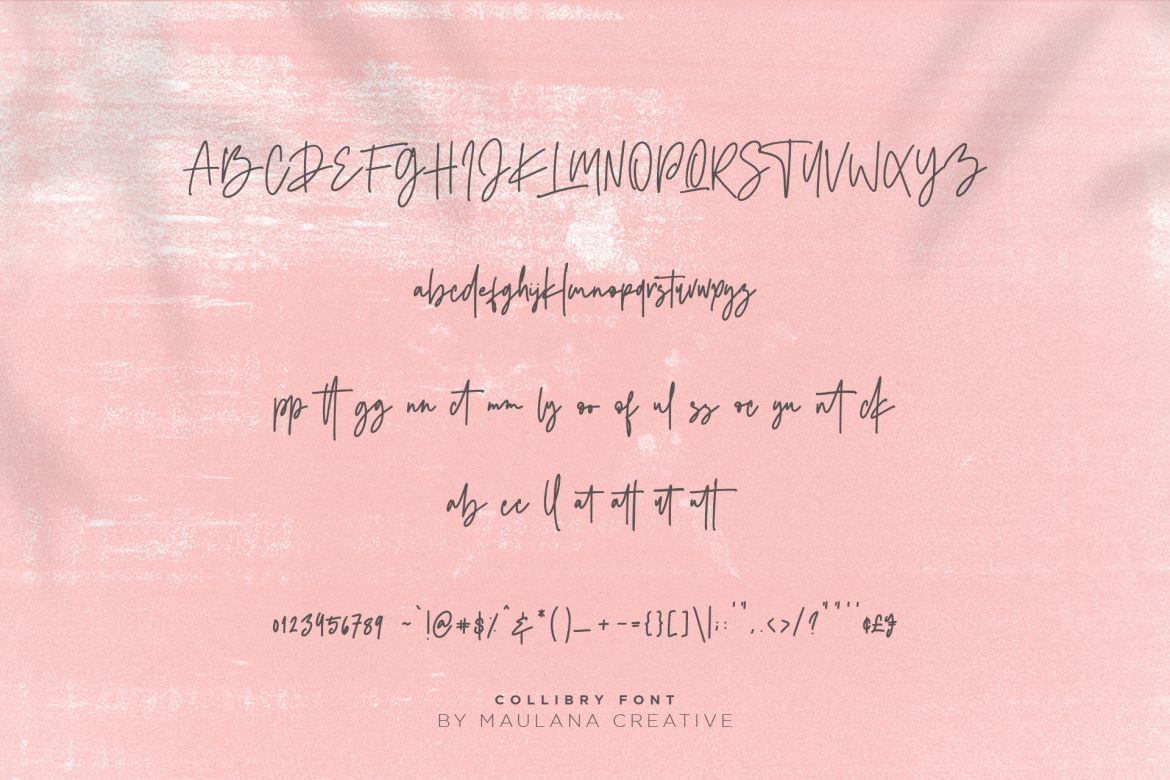 ABCDEFGHIJKLMNOPQRSTUVWXYZ
abcdefghijklmnopqrstuvwxyz
pp tt gg nn ct mm ly oo of ul ss oc yu nt ck
ab ec ll at att ut utt
0123456789 ~`!@#$%^&*()_+-={}[]\|;:'",.<>/?“”‘’¢£
COLLIBRY FONT
BY MAULANA CREATIVE